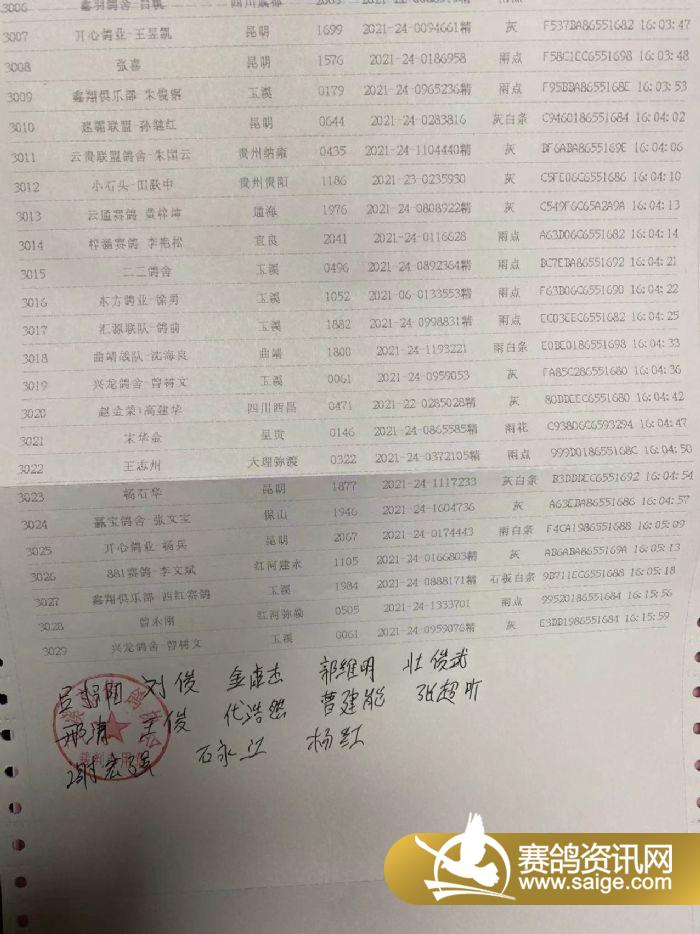 3006
3007 开心鸽业-王昱凯 昆明 1699 2021-24-0094661精 灰 F537BA86551682 16:03:47
3008 张嘉 昆明 1576 2021-24-0186958 雨点 F58C1EC6551698 16:03:48
3009 鑫翔俱乐部 朱俊 玉溪 0179 2021-24-0965236精 雨点 F95BBA8655168E 16:03:53
3010 联盟 孙继红 昆明 0644 2021-24-0283816 灰白条 C9460186551684 16:04:02
3011 云贵联盟鸽舍 朱国云 贵州纳雍 0435 2021-24-1104440精 灰 BF6ABA8655169E 16:04:06
3012 小石头-田跃中 贵州贵阳 1186 2021-23-0235930 灰 C5FE06C6551686 16:04:10
3013 云通赛鸽 黄梓坤 通海 1976 2021-24-0808922精 灰 C549F6C65A2A9A 16:04:13
3014 赛鸽 李艳松 宜良 2041 2021-24-0116628 雨点 A63D06C6551682 16:04:14
3015 二二鸽舍 玉溪 0496 2021-24-0892364精 雨点 BC7EBA86551692 16:04:21
3016 东方鸽业-徐勇 玉溪 1052 2021-06-0133553精 雨点 F63B06C6551690 16:04:22
3017 汇源联队-鸽韵 玉溪 1882 2021-24-0998831精 雨点 ECD3EEC6551682 16:04:25
3018 曲靖战队-沈海良 曲靖 1800 2021-24-1193221 雨白条 E0BE0186551698 16:04:33
3019 兴龙鸽舍-曾树文 玉溪 0061 2021-24-0959053 灰 FA85C286551680 16:04:36
3020 赵金荣+高建华 四川西昌 0471 2021-22-0285028精 灰 80DDEEC6551680 16:04:42
3021 宋华金 呈贡 0146 2021-24-0865585精 雨花 C93806C6593294 16:04:47
3022 王志州 大理弥渡 0322 2021-24-0372105精 雨点 999D018655168C 16:04:50
3023 杨石华 昆明 1877 2021-24-1117233 灰白条 B3DDDEC6551692 16:04:54
3024 赢宝鸽舍-张文宝 保山 1946 2021-24-1604736 灰 A63EBA86551686 16:04:57
3025 开心鸽业-杨兵 昆明 2067 2021-24-0174443 雨白条 F4CA1986551688 16:05:09
3026 881赛鸽-李文斌 红河建水 1105 2021-24-0166803精 灰 AB6ABA8655169A 16:05:13
3027 鑫翔俱乐部-西红赛鸽 玉溪 1984 2021-24-0888171精 石板白条 9B711EC6551688 16:05:18
3028 曾永刚 红河弥勒 0505 2021-24-1333701 雨点 99520186551684 16:15:56
3029 兴龙鸽舍-曾树文 玉溪 0061 2021-24-0959076精 灰 E3DD1986551684 16:15:59
刘俊 郭维明
王俊 代浩然 曹建能 张超
谢宏强 石永江 杨红
赛鸽资讯网
www.saige.com